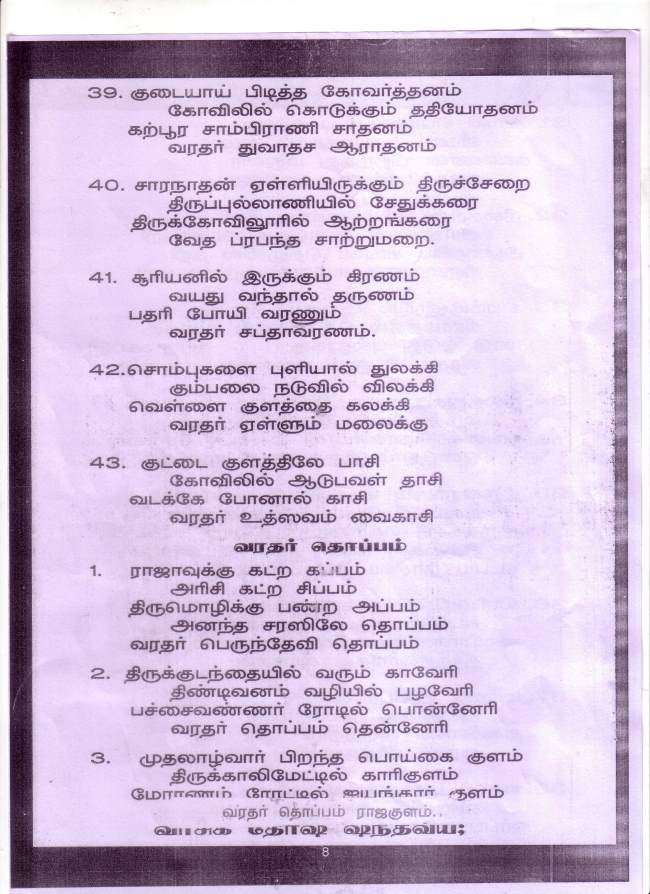 39. குடையாய் பிடித்த கோவர்த்தனம்
கோவிலில் கொடுக்கும் ததியோதனம்
கற்பூர சாம்பிராணி சாதனம்
வரதர் துவாதச ஆராதனம்
40. சாரநாதன் ஏள்ளியிருக்கும் திருச்சேறை
திருப்புல்லாணியில் சேதுக்கரை
திருக்கோவிலூரில் ஆற்றங்கரை
வேத ப்ரபந்த சாற்றுமறை.
41. சூரியனில் இருக்கும் கிரணம்
வயது வந்தால் தருணம்
பதரி போயி வரணும்
வரதர் சப்தாவரணம்.
42.சொம்புகளை புளியால் துலக்கி
கும்பலை நடுவில் விலக்கி
வெள்ளை குளத்தை கலக்கி
வரதர் ஏள்ளும் மலைக்கு
43. குட்டை குளத்திலே பாசி
கோவிலில் ஆடுபவள் தாசி
வடக்கே போனால் காசி
வரதர் உத்ஸவம் வைகாசி
வரதர் தொப்பம்
1. ராஜாவுக்கு கட்ற கப்பம்
அரிசி கட்ற சிப்பம்
திருமொழிக்கு பண்ற அப்பம்
அனந்த சரஸிலே தொப்பம்
வரதர் பெருந்தேவி தொப்பம்
2. திருக்குடந்தையில் வரும் காவேரி
திண்டிவனம் வழியில் பழவேரி
பச்சைவண்ணர் ரோடில் பொன்னேரி
வரதர் தொப்பம் தென்னேரி
3. முதலாழ்வார் பிறந்த பொய்கை குளம்
திருக்காலிமேட்டில் காரிகுளம்
மோரணம் ரோட்டில் ஐயங்கார் குளம்
வரதர் தொப்பம் ராஜகுளம்..
8